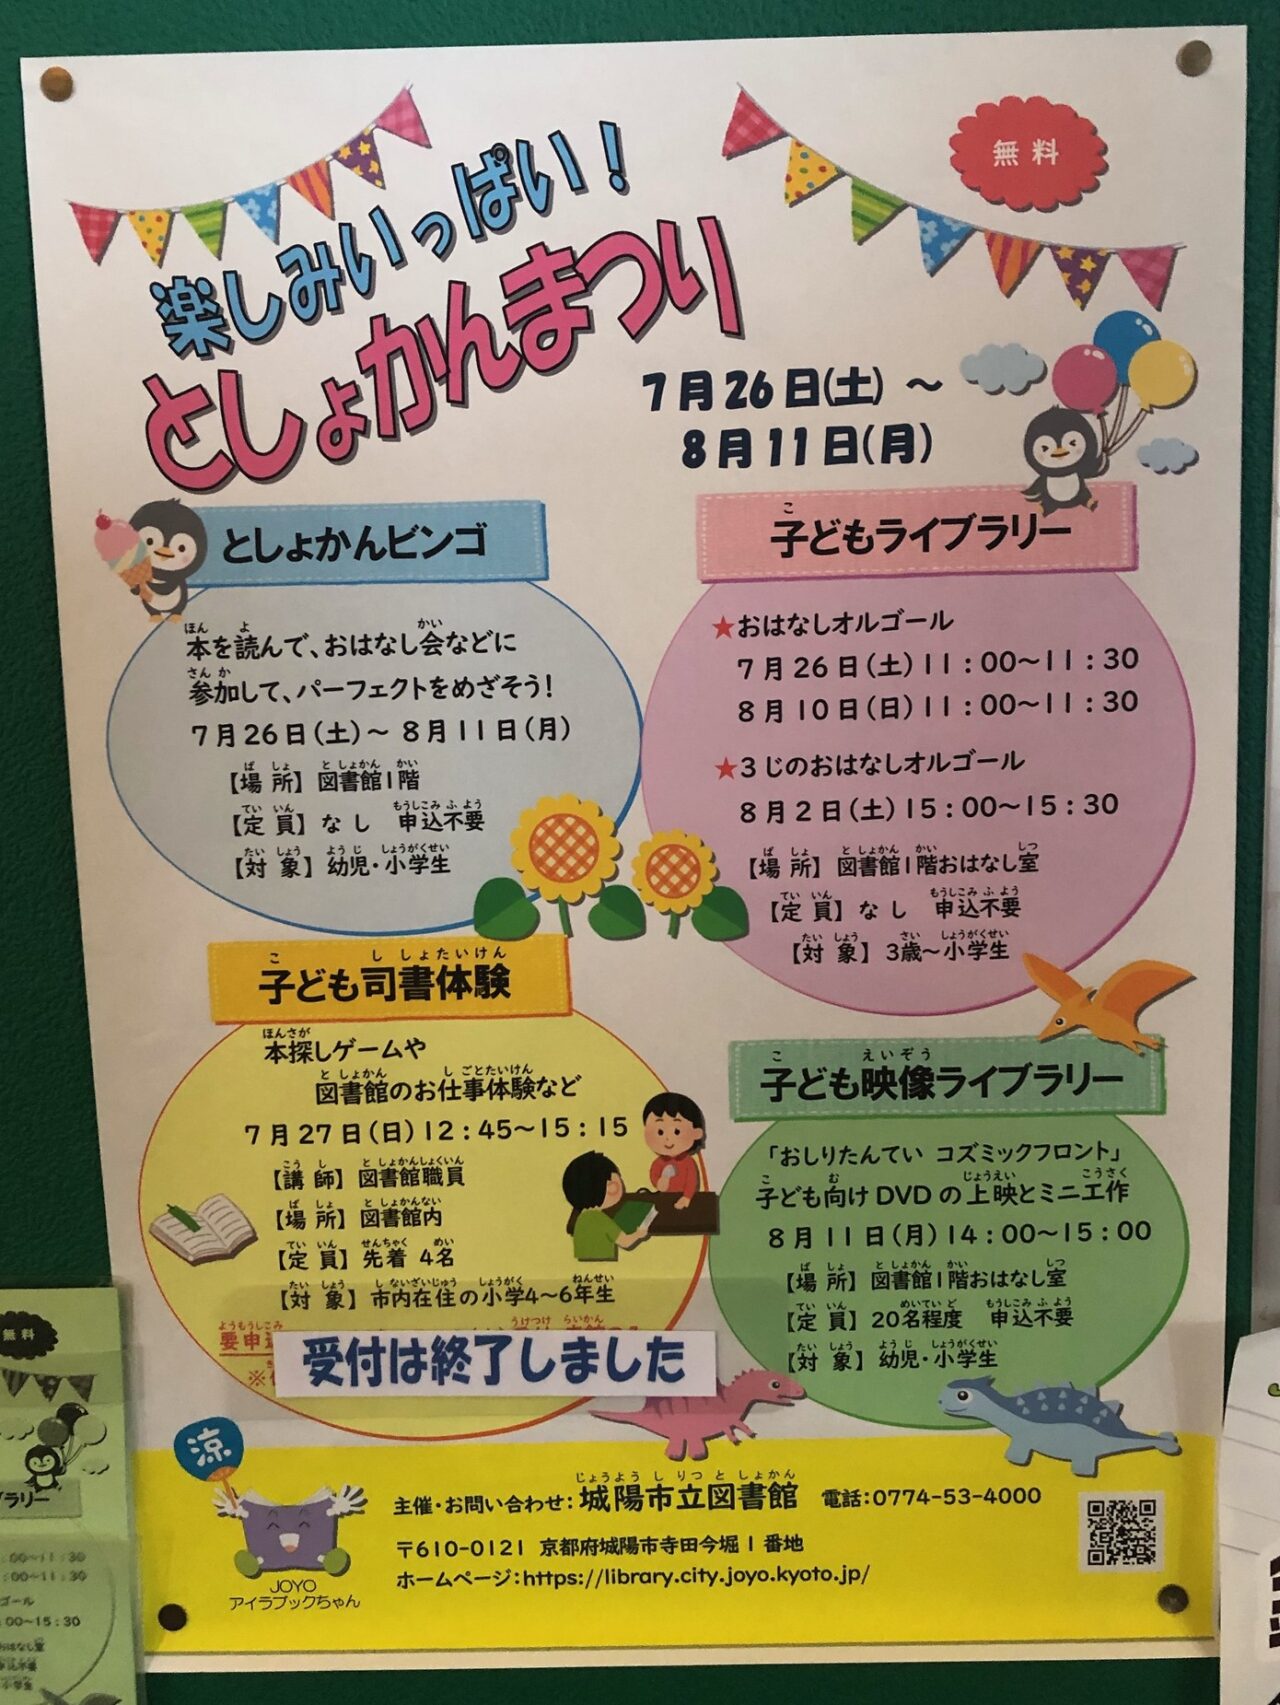 無料
楽しみいっぱい!
としょかんまつり
7月26日(土) ～
8月11日(月)
としょかんビンゴ
本を読んで、おはなし会などに
参加して、パーフェクトをめざそう!
7月26日(土)～ 8月11日(月)
【場所】図書館1階
【定員】なし 申込不要
【対象】幼児・小学生
子どもライブラリー
★おはなしオルゴール
7月26日(土)11:00～11:30
8月10日(日)11:00～11:30
★3じのおはなしオルゴール
8月2日(土)15:00～15:30
【場所】図書館1階おはなし室
【定員】なし 申込不要
【対象】3歳～小学生
子ども司書体験
本探しゲームや
図書館のお仕事体験など
7月27日(日)12:45～15:15
【講師】図書館職員
【場所】図書館内
【定員】先着 4名
【対象】市内在住の小学4～6年生
要申込
受付は終了しました
子ども映像ライブラリー
「おしりたんてい コズミックフロント」
子ども向けDVDの上映とミニ工作
8月11日(月)14:00～15:00
【場所】図書館1階おはなし室
【定員】20名程度 申込不要
【対象】幼児・小学生
涼
JOYO
アイラブックちゃん
主催・お問い合わせ:城陽市立図書館 電話:0774-53-4000
〒610-0121 京都府城陽市寺田今堀1番地
ホームページ:https://library.city.joyo.kyoto.jp/
無料
ラリー
:00～11:30
:00～11:30
ゴール
:00～15:30